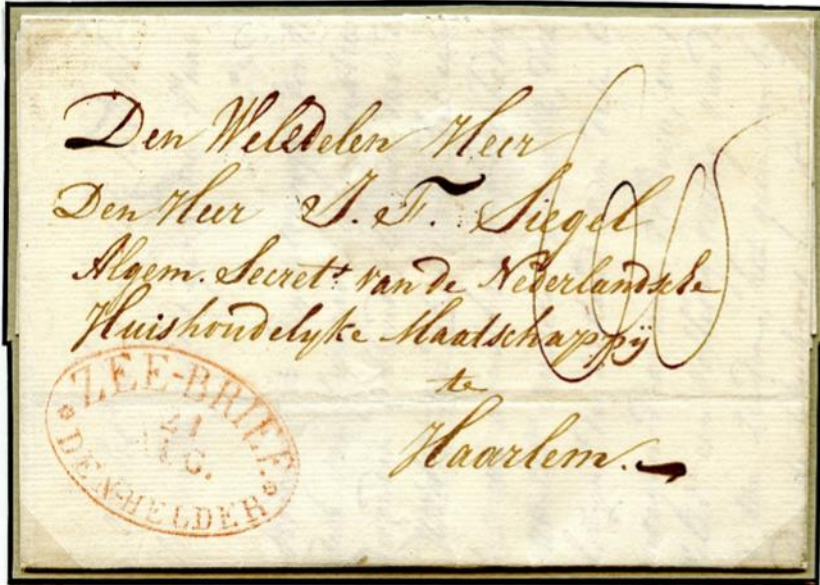 Den WelEdelen Heer
Den Heer J. F. Siegel
Algem. Secrets. van de Nederlandsche
Huishoudelyke Maatschappÿ
te
Haarlem.
60
ZEE-BRIEF.
21
AUG.
DEN-HELDER